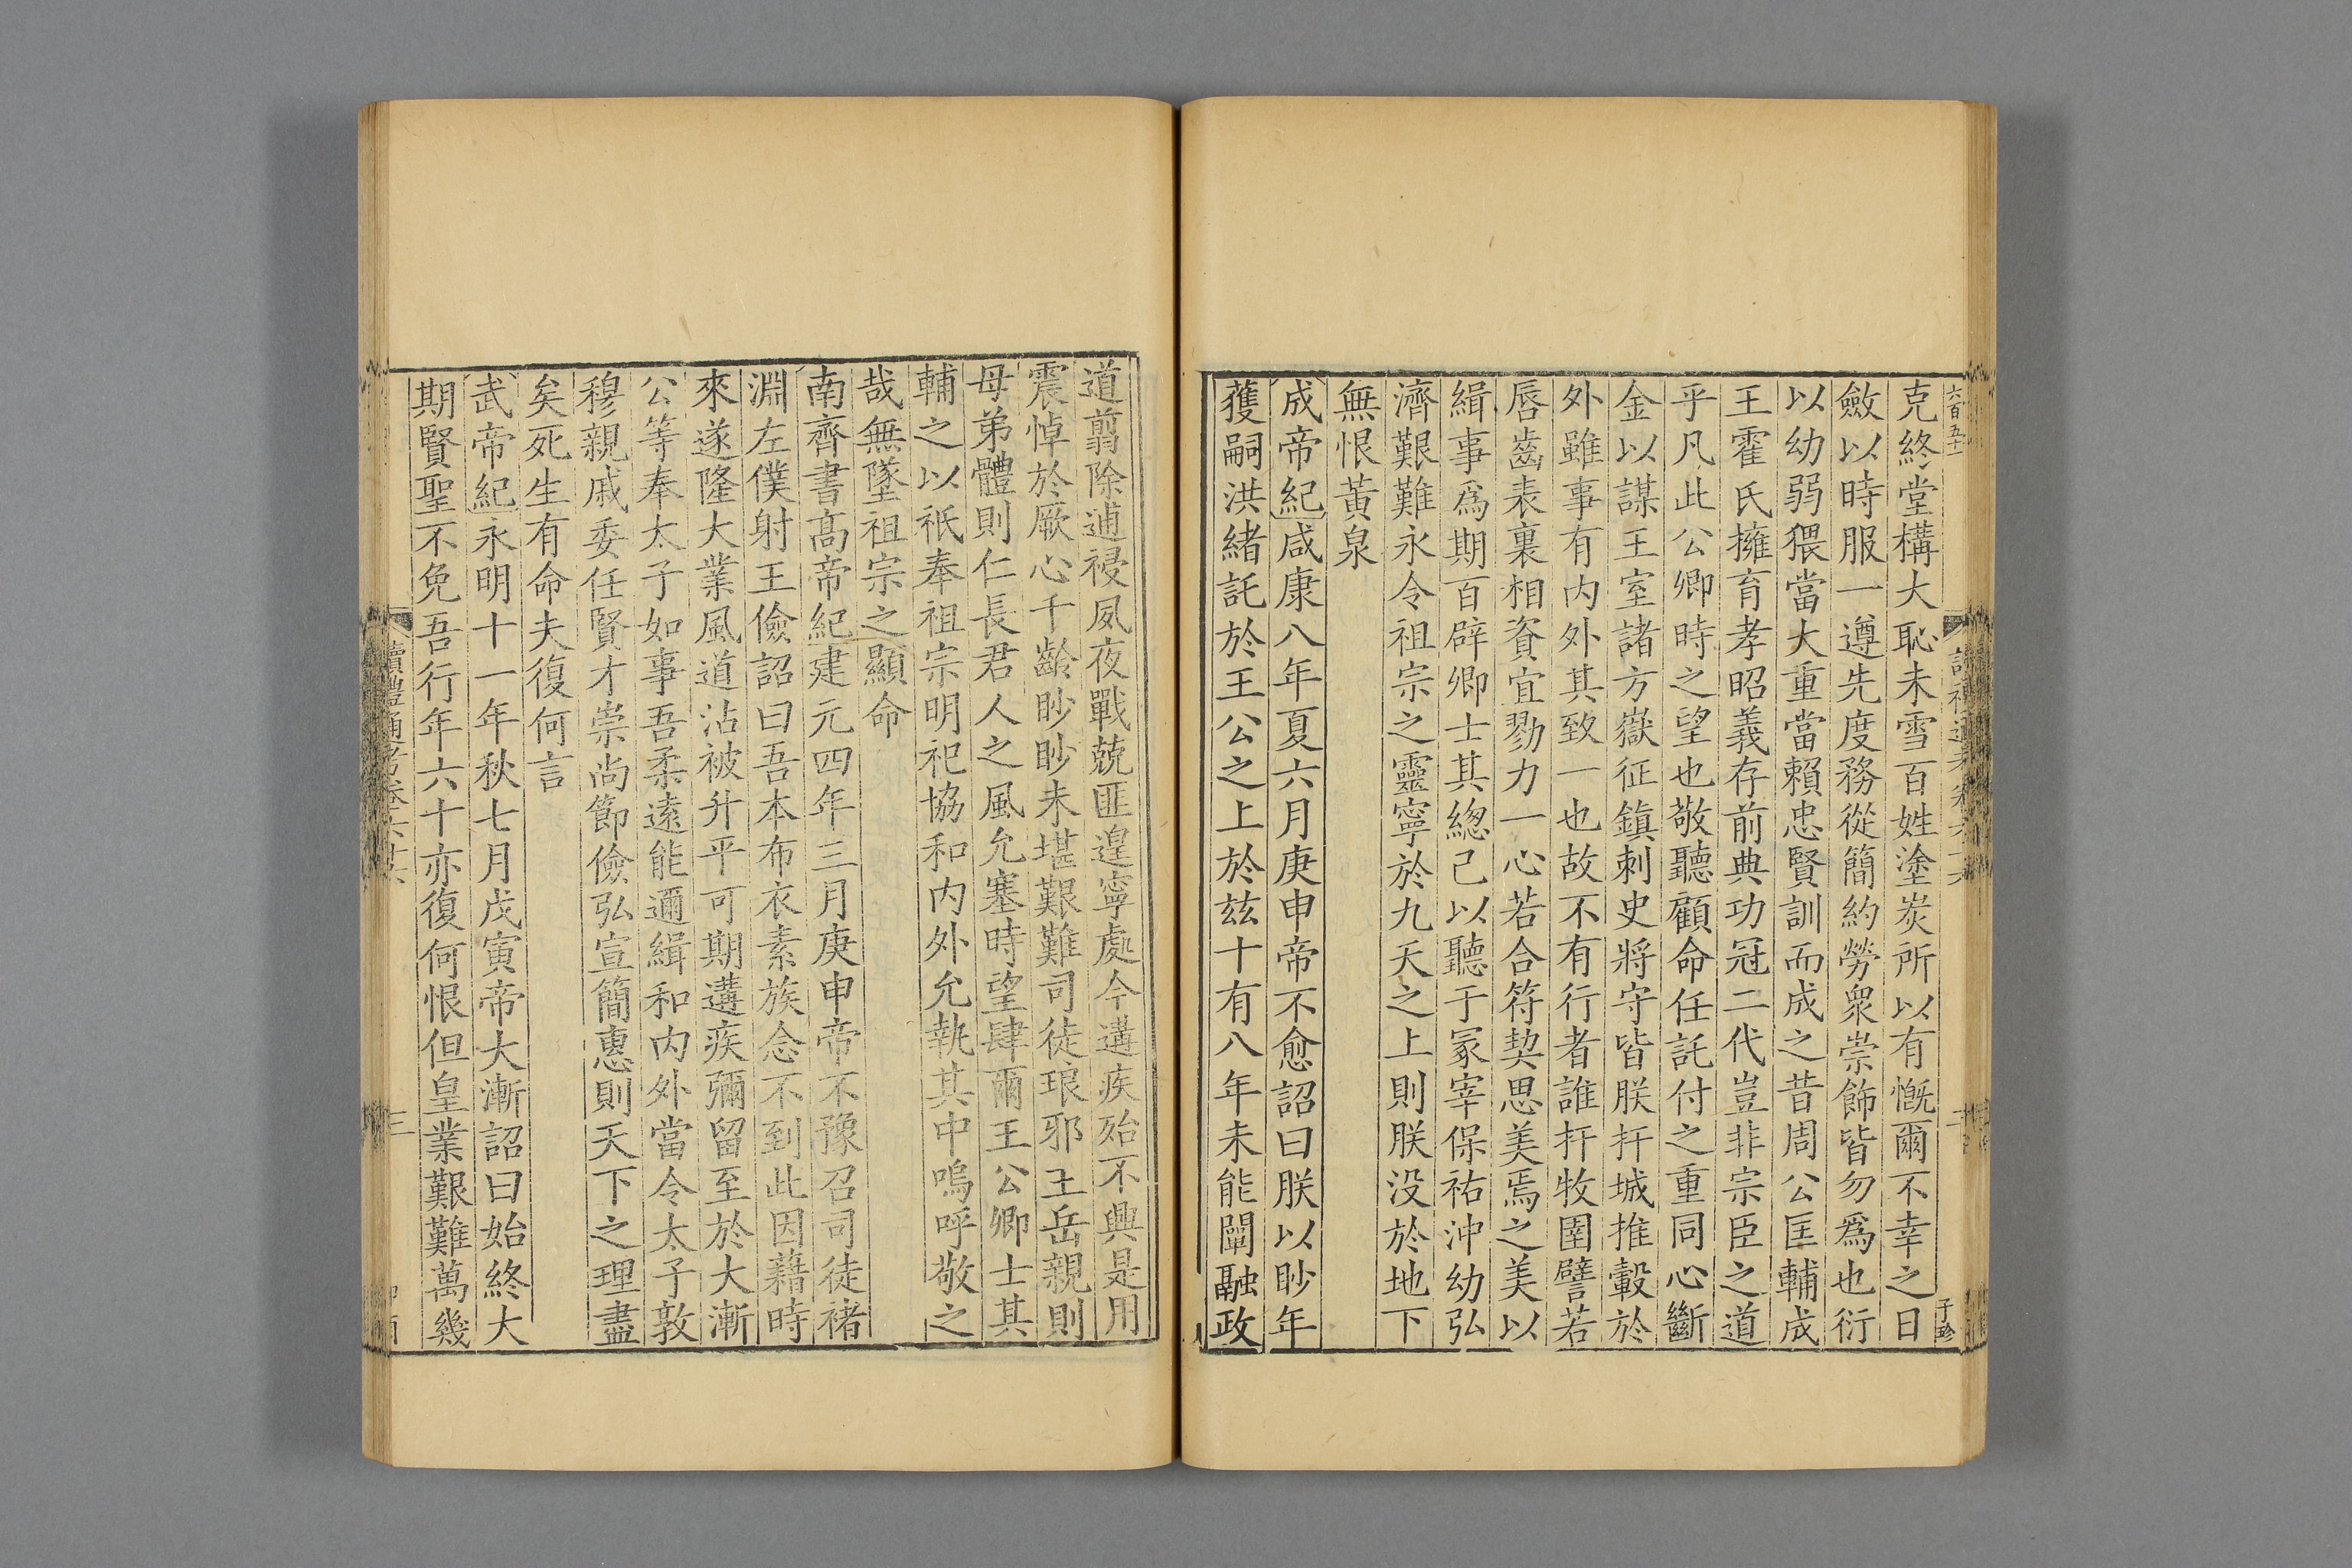 六百五十
克終堂構大恥未雪百姓塗炭所以有慨爾不幸之日
斂以時服一遵先度務從簡約勞衆崇飾皆勿爲也衍
以幼弱猥當大重當賴忠賢訓而成之昔周公匡輔成
王霍氏擁育孝昭義存前典功冠二代豈非宗臣之道
乎凡此公卿時之望也敬聽顧命任託付之重同心斷
金以謀王室諸方嶽征鎮刺史將守皆朕扞城推轂於
外雖事有内外其致一也故不有行者誰扞牧圉譬若
唇齒表裏相資宜勠力一心若合符契思美焉之美以
緝事爲期百辟卿士其緫己以聽于冢宰保祐沖幼弘
濟艱難永令祖宗之靈寧於九天之上則朕没於地下
無恨黃泉
成帝紀咸康八年夏六月庚申帝不愈詔曰朕以眇年
獲嗣洪緒託於王公之上於兹十有八年未能闡融政
道翦除逋祲夙夜戰兢匪遑寧處今遘疾殆不興是用
震悼於厥心千齡眇眇未堪艱難司徒琅邪王岳親則
母弟體則仁長君人之風允塞時望肆爾王公卿士其
輔之以祇奉祖宗明祀協和内外允執其中嗚呼敬之
哉無墜祖宗之顯命
南齊書髙帝紀建元四年三月庚申帝不豫召司徒褚
淵左僕射王儉詔曰吾本布衣素族念不到此因藉時
來遂隆大業風道沾被升平可期遘疾彌留至於大漸
公等奉太子如事吾柔遠能邇緝和内外當令太子敦
穆親戚委任賢才崇尚節儉弘宣簡惠則天下之理盡
矣死生有命夫復何言
武帝紀永明十一年秋七月戊寅帝大漸詔曰始終大
期賢聖不免吾行年六十亦復何恨但皇業艱難萬幾
讀禮通考卷六十六
三